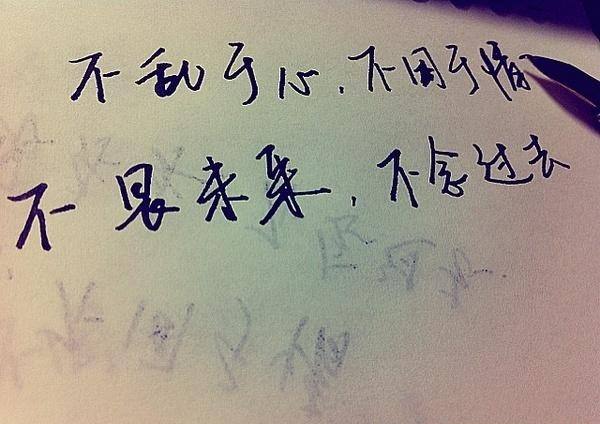 不乱于心，不困于情
不畏未来，不念过去